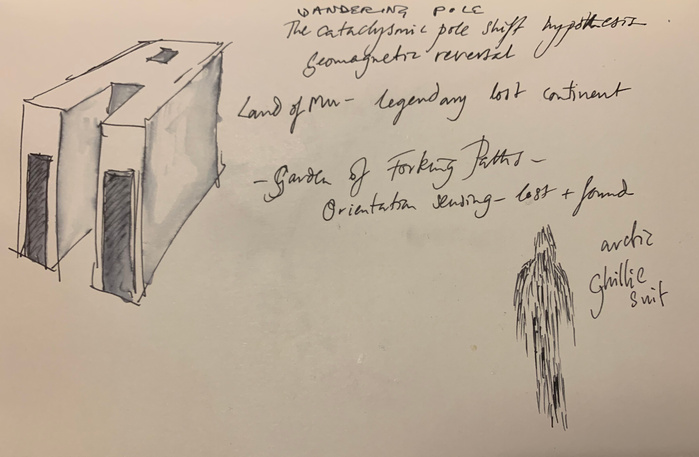 WANDERING POLE
The cataclysmic pole shift hypothesis
Geomagnetic reversal
Land of Mu - legendary lost continent
- Garden of Forking Paths -
Orientation sending - lost + found
arctic
Ghillie
suit